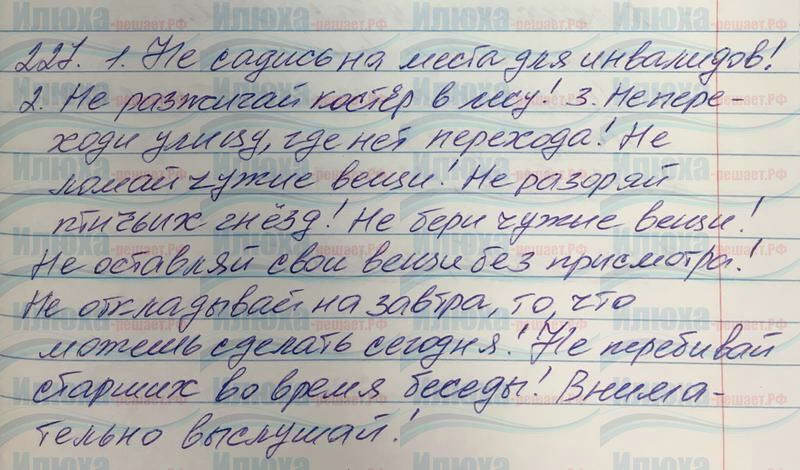 227. 1. Не садись на места для инвалидов!
2. Не разжигай костёр в лесу! 3. Не пере-
ходи улицу, где нет перехода! Не
ломай чужие вещи! Не разоряй
птичьих гнёзд! Не бери чужие вещи!
Не оставляй свои вещи без присмотра!
Не откладывай на завтра, то, что
можешь сделать сегодня! Не перебивай
старших во время беседы! Внима-
тельно выслушай!